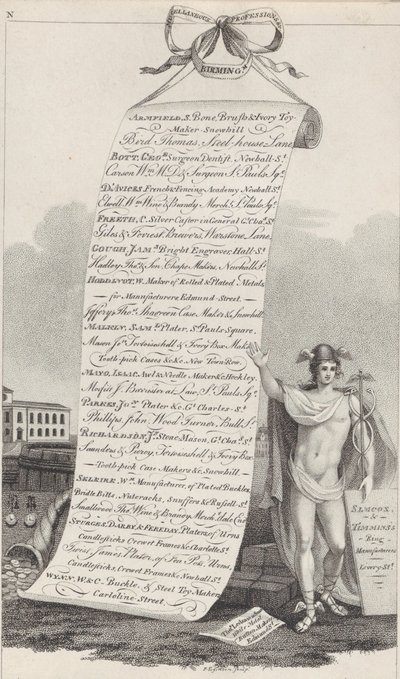 N
MISCELLANEOUS PROFESSIONS
BIRMINGM
ARMFIELD, S. Bone, Brush & Ivory Toy
Maker Snowhill
Bird Thomas, Steel-house Lane
BOTT, GEOe. Surgeon Dentist, Newhall-St.
Carson Wm. M.D & Surgeon St. Pauls Sqe.
D'AVICES French & Fencing Academy Newhall St.
Elwell Wm. Wine & Brandy Merch.t St. Pauls Sqe.
FREETH, C. Silver Caster in General Gt. Chas. St.
Giles & Forrest, Brewers, Warstone Lane
GOUGH, JAMs. Bright Engraver, Hall-St.
Hadley Thos. & Son, Chape Makers, Newhall St.
HODDEVOT, W. Maker of Rolled & Plated Metals,
for Manufacturers Edmund-Street
Jeffery Thos. Shagreen Case Maker & Snowhill
MALKIN, SAMl. Plater, St. Pauls Square,
Mason Jos. Tortoiseshell & Ivory Box Maker
Tooth-pick Cases &c &c. New Town Row
MAYO, ISAAC, Awl & Needle Maker &c Hockley,
Moffit J. Barrister at Law, St. Pauls Sqe.
PARKES, Jno. Plater &c Gt. Charles-St.
Phillips, John, Wood Turner, Bull St.
RICHARDSON, Js. Stone Mason, Gt. Chas. St.
Saunders & Piercy, Tortoiseshell & Ivory Box
Tooth-pick Case Makers &c. Snowhill
SELKIRK, Wm. Manufacturer, of Plated Buckles,
Bridle Bitts, Nutcracks, Snuffers &c Russell-St.
Smallwood Thos. Wine & Brandy Merch.t
STURGES, DARBY & FEREDAY, Platers of Urns
Candlesticks Crewet Frames &c Charlotte St.
Twist James, Plater, of Tea Pots, Urns,
Candlesticks, Crewet Frames &c Newhall St.
WYNN, W. & C. Buckle, & Steel Toy Makers
Caroline Street.
SIMCOX
&
TIMMINSS
Ring
Manufacturers
Livery-St.
Tho.s
Button Maker
Edmund St.